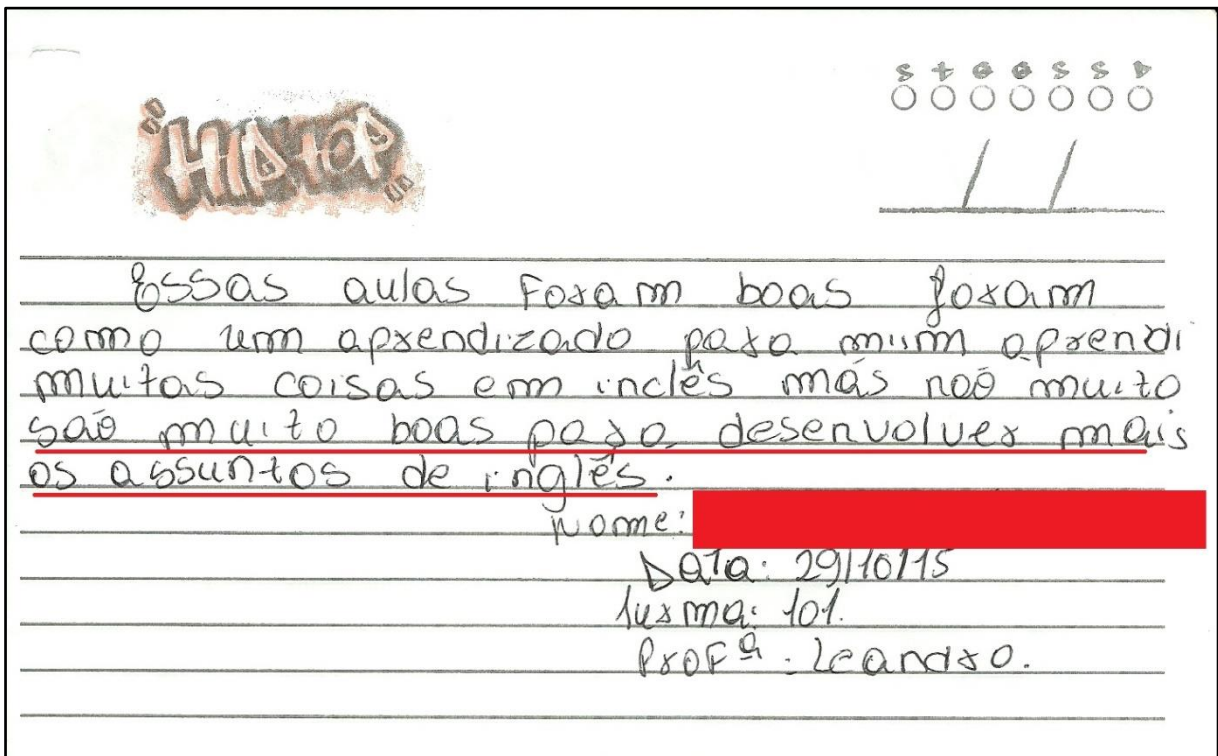 S T Q Q S S D
"HIP HOP"
/ /
Essas aulas foram boas foram
como um aprendizado para mim aprendi
muitas coisas em inclês más noõ muito
saõ muito boas para desenvolver mais
os assuntos de inglês.
Nome:
Data: 29/10/15
Turma: 101.
Profª: Leandro.